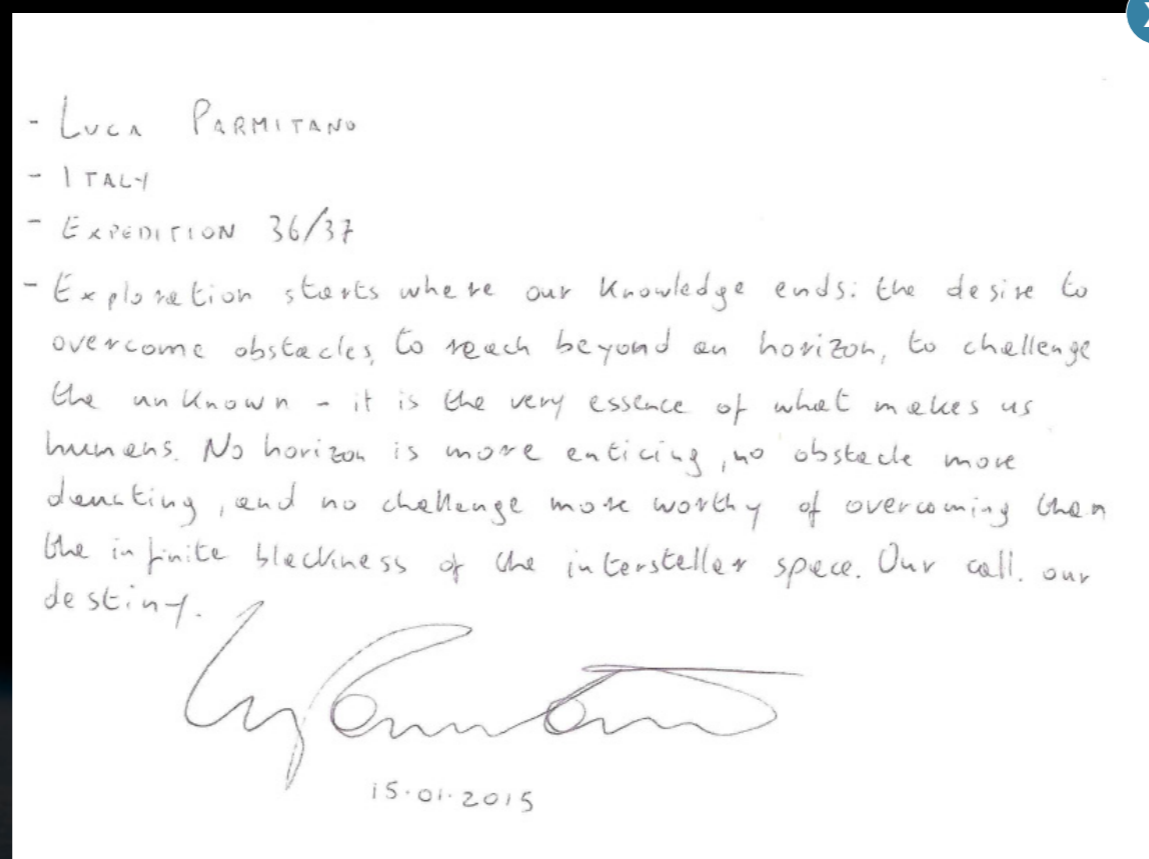 - LUCA PARMITANO
- ITALY
- EXPEDITION 36/37
- Exploration starts where our knowledge ends: the desire to
overcome obstacles, to reach beyond an horizon, to challenge
the unknown - it is the very essence of what makes us
humans. No horizon is more enticing, no obstacle more
daunting, and no challenge more worthy of overcoming than
the infinite blackness of the interstellar space. Our call. our
destiny.
15.01.2015